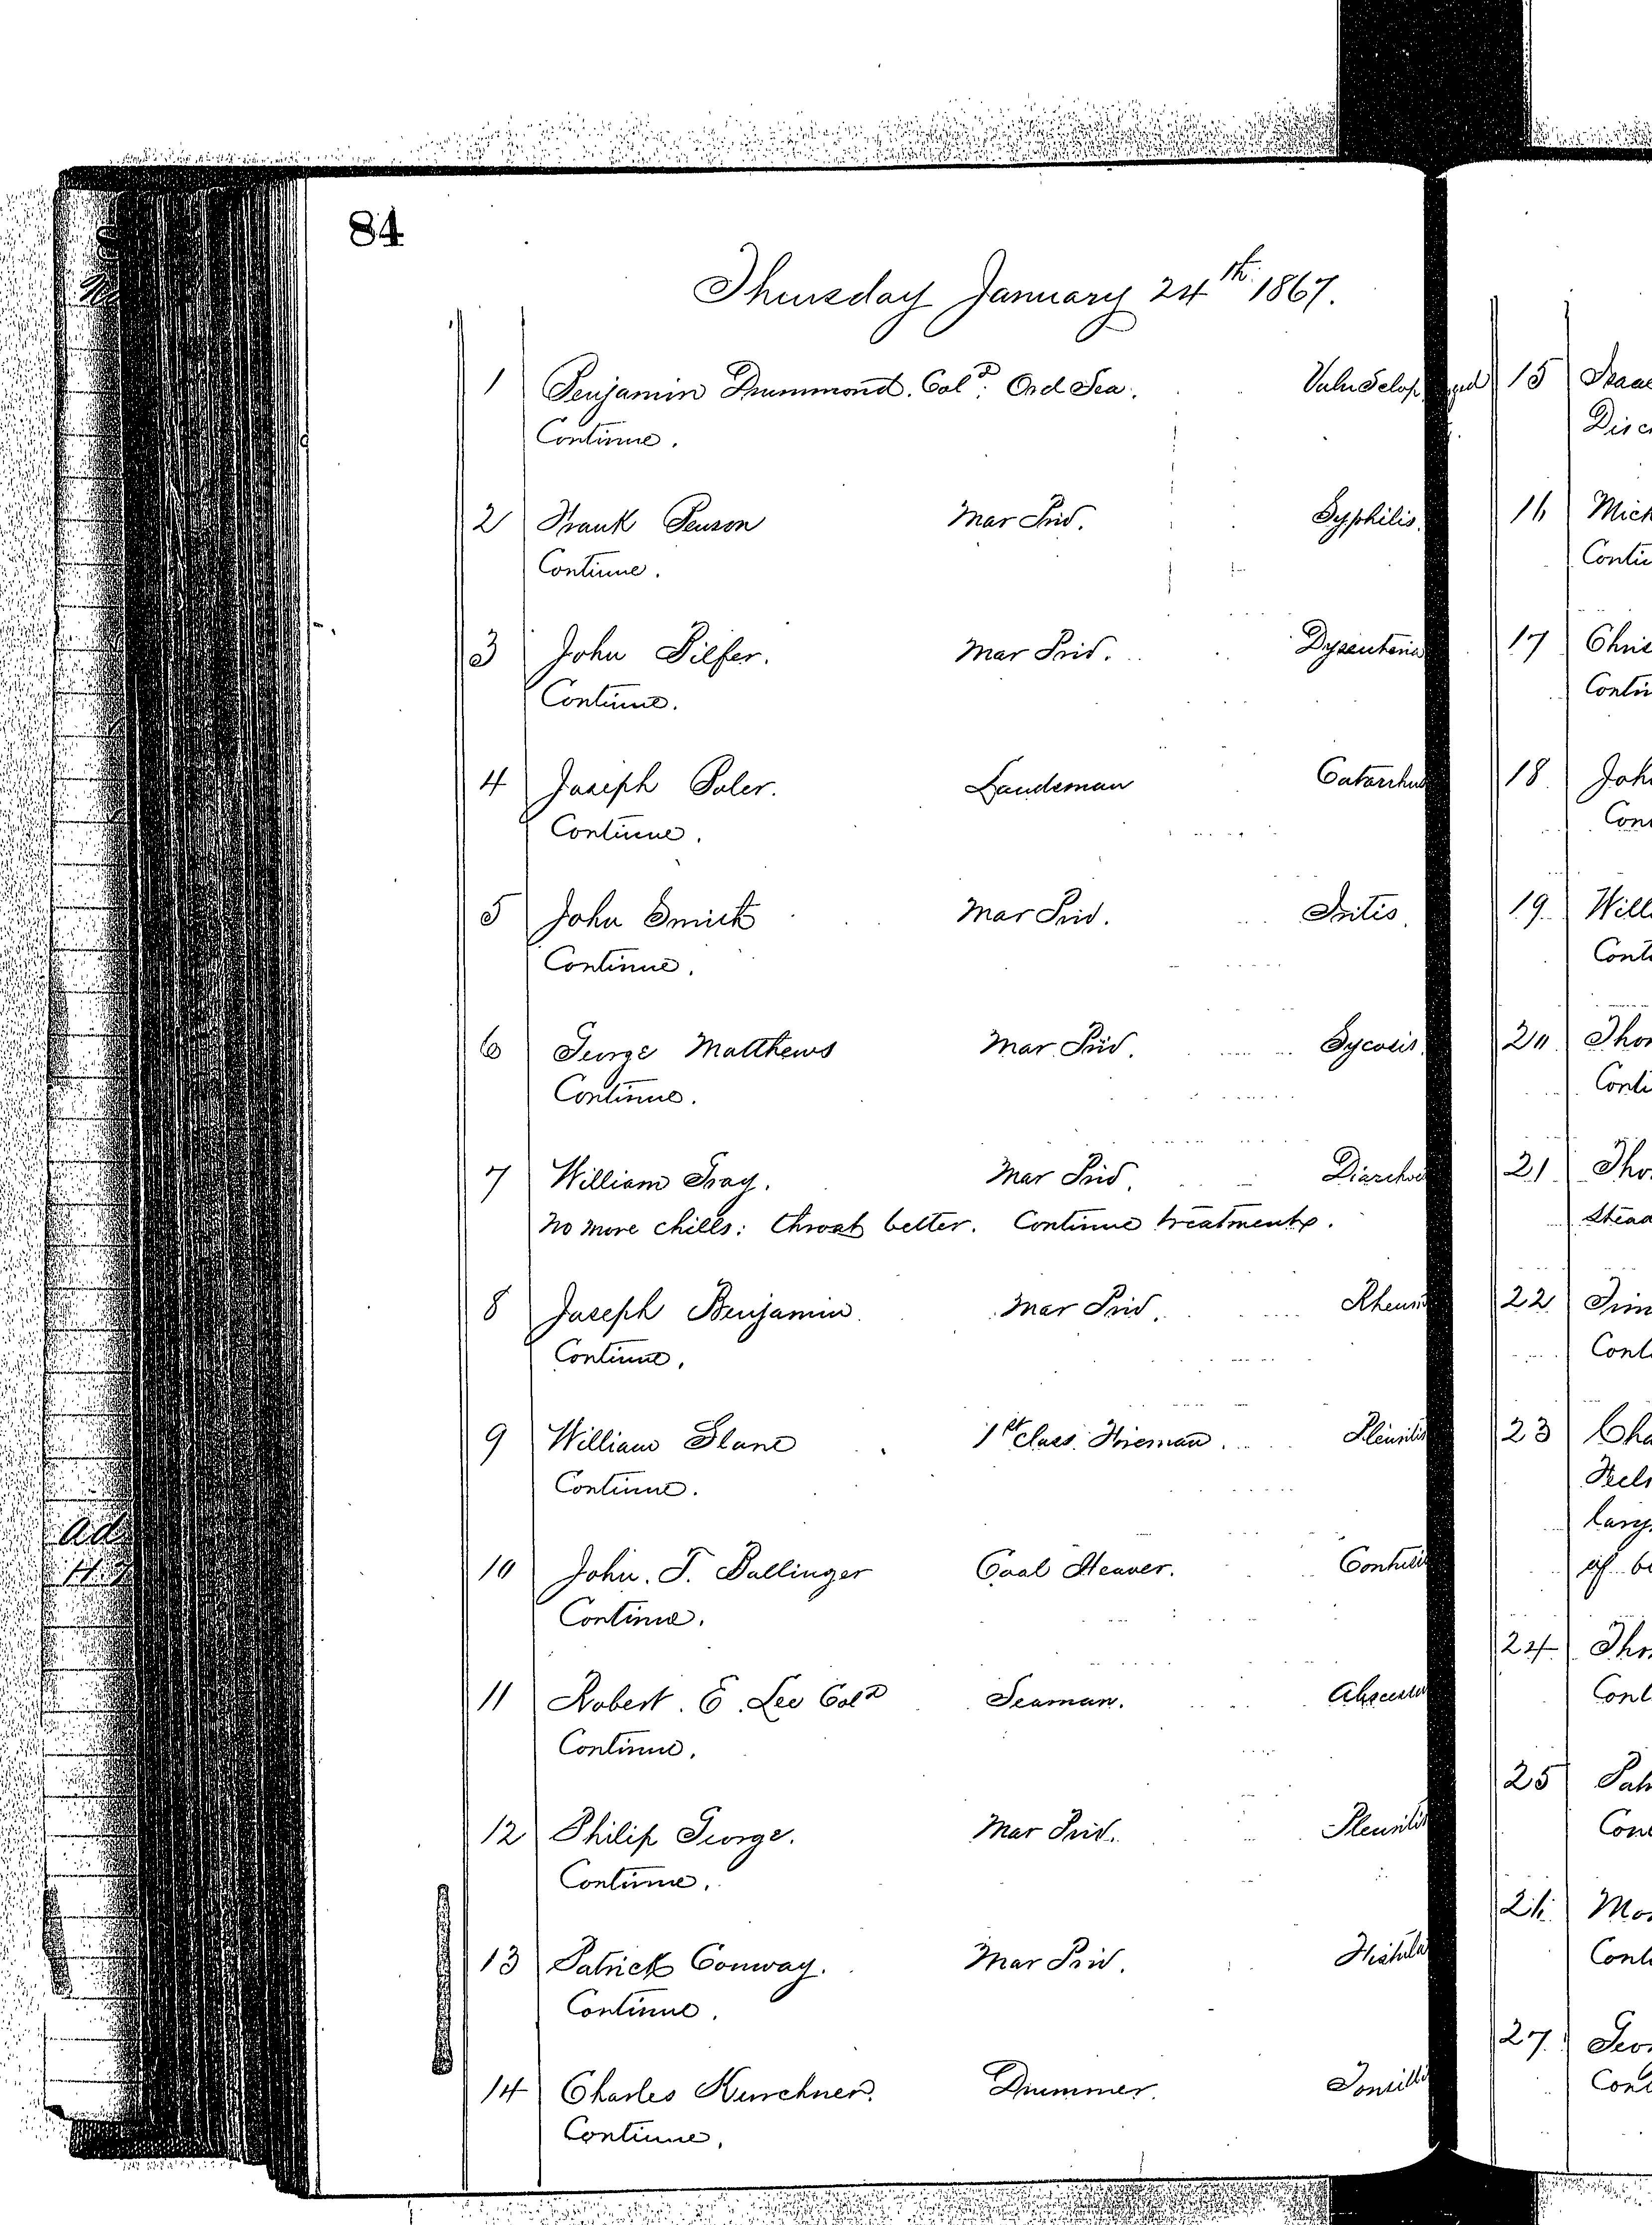 84
Thursday January 24th 1867.
1 Benjamin Drummond. Cold. Ord Sea. Vuln Sclop
Continue.
2 Frank Benson Mar Priv. Syphilis.
Continue.
3 John Pilfer. Mar Priv. Dysenteria
Continue.
4 Joseph Poler. Landsman Catarrhus
Continue.
5 John Smith Mar Priv. Iritis.
Continue.
6 George Matthews Mar Priv. Sycosis.
Continue.
7 William Gray. Mar Priv. Diarrhoe
No more chills: throat better. Continue treatment.
8 Joseph Benjamin Mar Priv. Rheum
Continue.
9 William Slane 1st Class Fireman. Pleuritis
Continue.
10 John. T. Ballinger Coal Heaver. Contusi
Continue.
11 Robert. E. Lee Cold Seaman. Abscessus
Continue.
12 Philip George. Mar Priv. Pleuritis
Continue.
13 Patrick Conway. Mar Priv. Fistula
Continue.
14 Charles Kurchner. Drummer. Tonsilli
Continue.
15 Isaac
Disc
16 Mich
Contin
17 Chris
Contin
18 John
Con
19 Will
Conti
20 Thom
Conti
21 Tho
Stead
22 Tim
Cont
23 Cha
Feels
lary
of b
24 Tho
Cont
25 Pat
Con
26 Mo
Conti
27 Geo
Cont